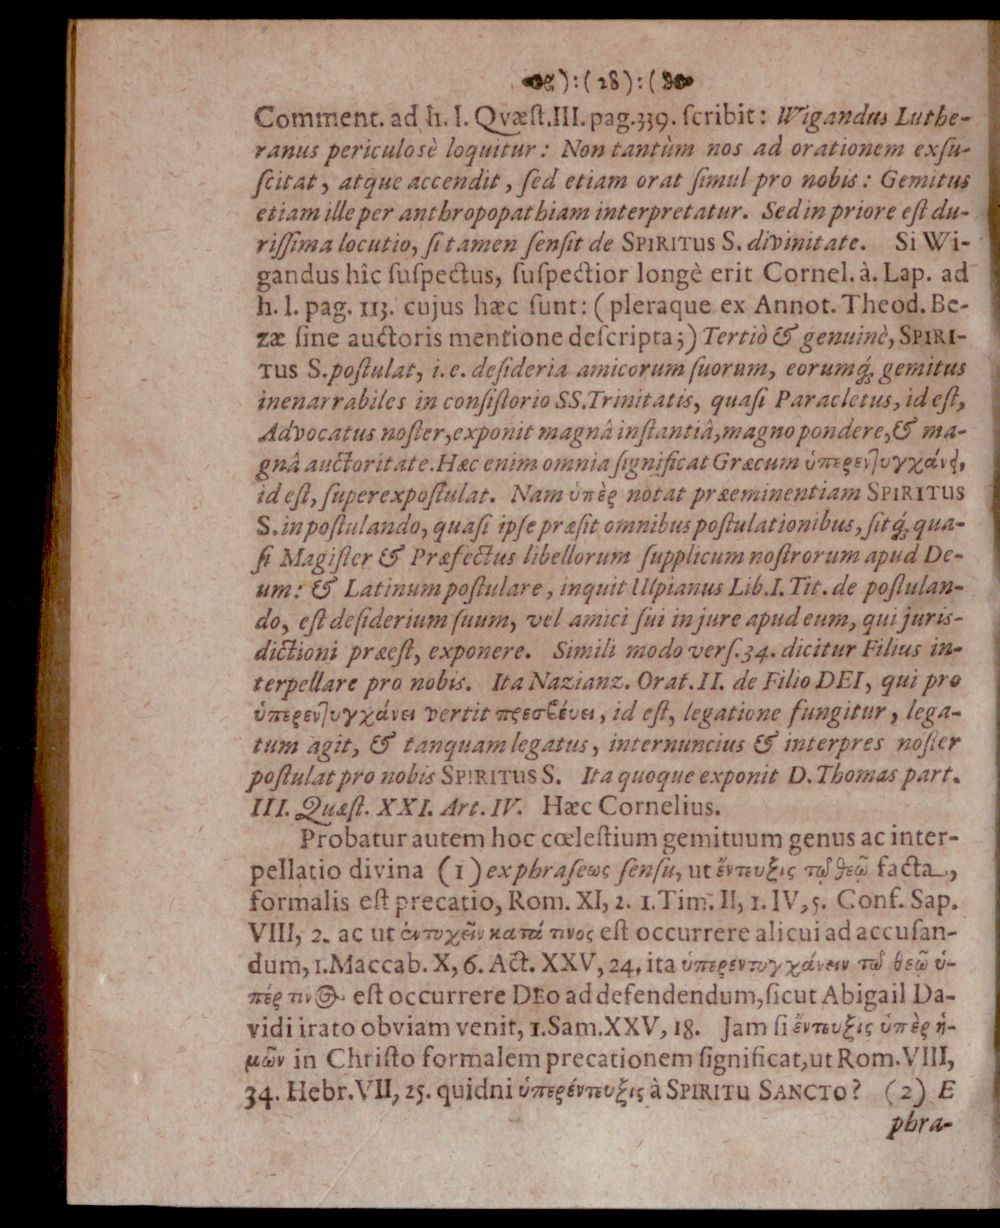 ):(28):(
Comment. ad h. l. Qvæſt.III. pag.339. ſcribit: Wigandus Luthe-
ranus periculosè loquitur: Non tantùm nos ad orationem exſu-
ſcitat, atque accendit, ſed etiam orat ſimul pro nobis: Gemitus
etiam ille per anthropopathiam interpretatur. Sed in priore eſt du-
riſſima locutio, ſi tamen ſenſit de SPIRITUS S. divinitate. Si Wi-
gandus hîc ſuſpectus, ſuſpectior longè erit Cornel. à. Lap. ad
h. l. pag. 113. cujus hæc ſunt: (pleraque ex Annot. Theod. Be-
zæ ſine auctoris mentione deſcripta;) Tertiò & genuinè, SPIRI-
TUS S. poſtulat, i. e. deſideria amicorum ſuorum, eorumq́; gemitus
inenarrabiles in conſiſtorio SS. Trinitatis, quaſi Paracletus, id eſt,
Advocatus noſter, exponit magnâ inſtantiâ, magno pondere, & ma-
gnâ auctoritate. Hæc enim omnia ſignificat Græcum ὑπερεντυγχάνει,
id eſt, ſuperexpoſtulat. Nam ὑπὲρ notat præeminentiam SPIRITUS
S. in poſtulando, quaſi ipſe præſit omnibus poſtulationibus, ſitq́; qua-
ſi Magiſter & Præfectus libellorum ſupplicum noſtrorum apud De-
um: & Latinum poſtulare, inquit Ulpianus Lib. I. Tit. de poſtulan-
do, eſt deſiderium ſuum, vel amici ſui in jure apud eum, qui juris-
dictioni præeſt, exponere. Simili modo verſ. 34. dicitur Filius in-
terpellare pro nobis. Ita Nazianz. Orat. II. de Filio DEI, qui pro
ὑπερεντυγχάνει vertit πρεσβέυει, id eſt, legatione fungitur, lega-
tum agit, & tanquam legatus, internuncius & interpres noſter
poſtulat pro nobis SPIRITUS S. Ita quoque exponit D. Thomas part.
III. Quæſt. XXI. Art. IV. Hæc Cornelius.
Probatur autem hoc cœleſtium gemituum genus ac inter-
pellatio divina (1) exphraſεως ſenſu, ut ἔντευξις τῷ θεῷ facta,
formalis eſt precatio, Rom. XI, 2. 1. Tim. II, 1. IV, 5. Conf. Sap.
VIII, 2. ac ut ἐντυχεῖν κατά τινος eſt occurrere alicui ad accuſan-
dum, 1. Maccab. X, 6. Act. XXV, 24. ita ὑπερεντυγχάνειν τῷ θεῷ ὑ-
πέρ τινος eſt occurrere DEO ad defendendum, ſicut Abigail Da-
vidi irato obviam venit, 1. Sam. XXV, 18. Jam ſi ἔντευξις ὑπὲρ ἡ-
μῶν in Chriſto formalem precationem ſignificat, ut Rom. VIII,
34. Hebr. VII, 25. quidni ὑπερέντευξις à SPIRITU SANCTO? (2) E
phra-